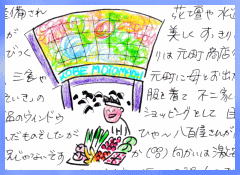 備され 花壇や水
が 美しく すっきり
びっく りは元町商店
三食や 元町に母とお出
ていきの 服を着て 不二家
品のウィンドウ ショッピングとして 目
んだものをしたが ひゃ〜八百屋さんが
じゃないです か(99)向かいは激安